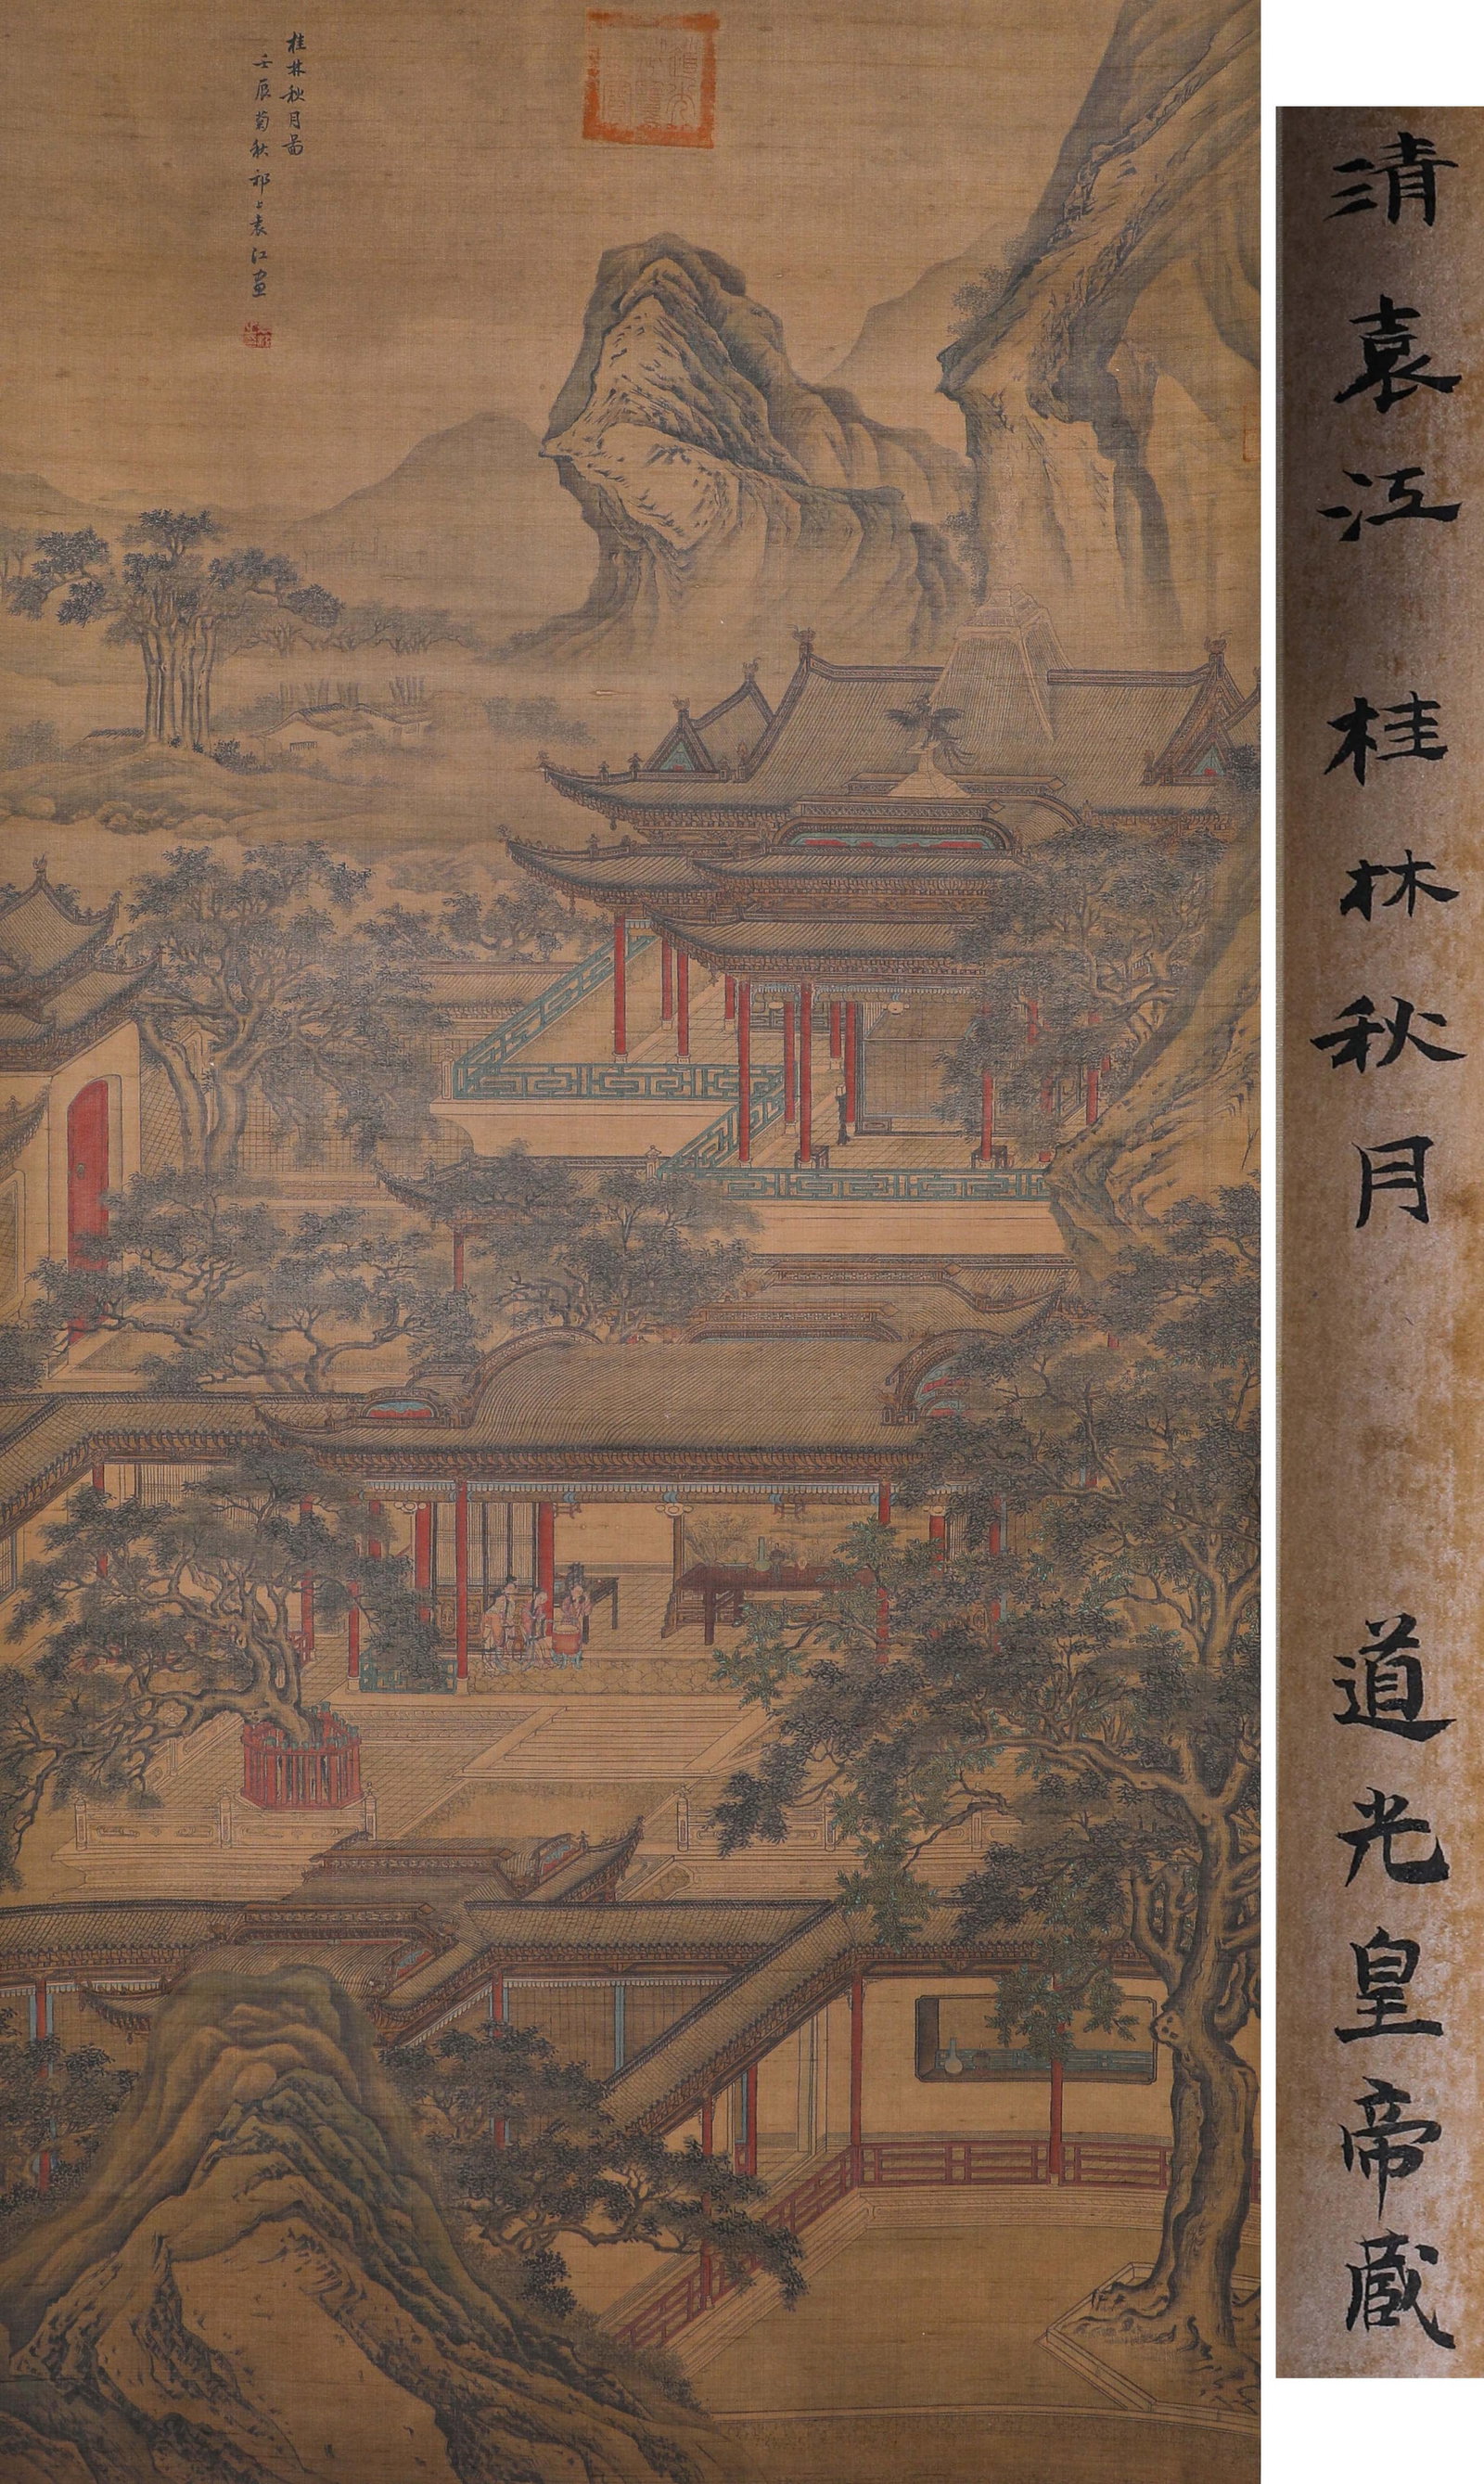 桂林秋月啚
壬辰菊秋邗上袁江畫
清袁江桂林秋月 道光皇帝蔵